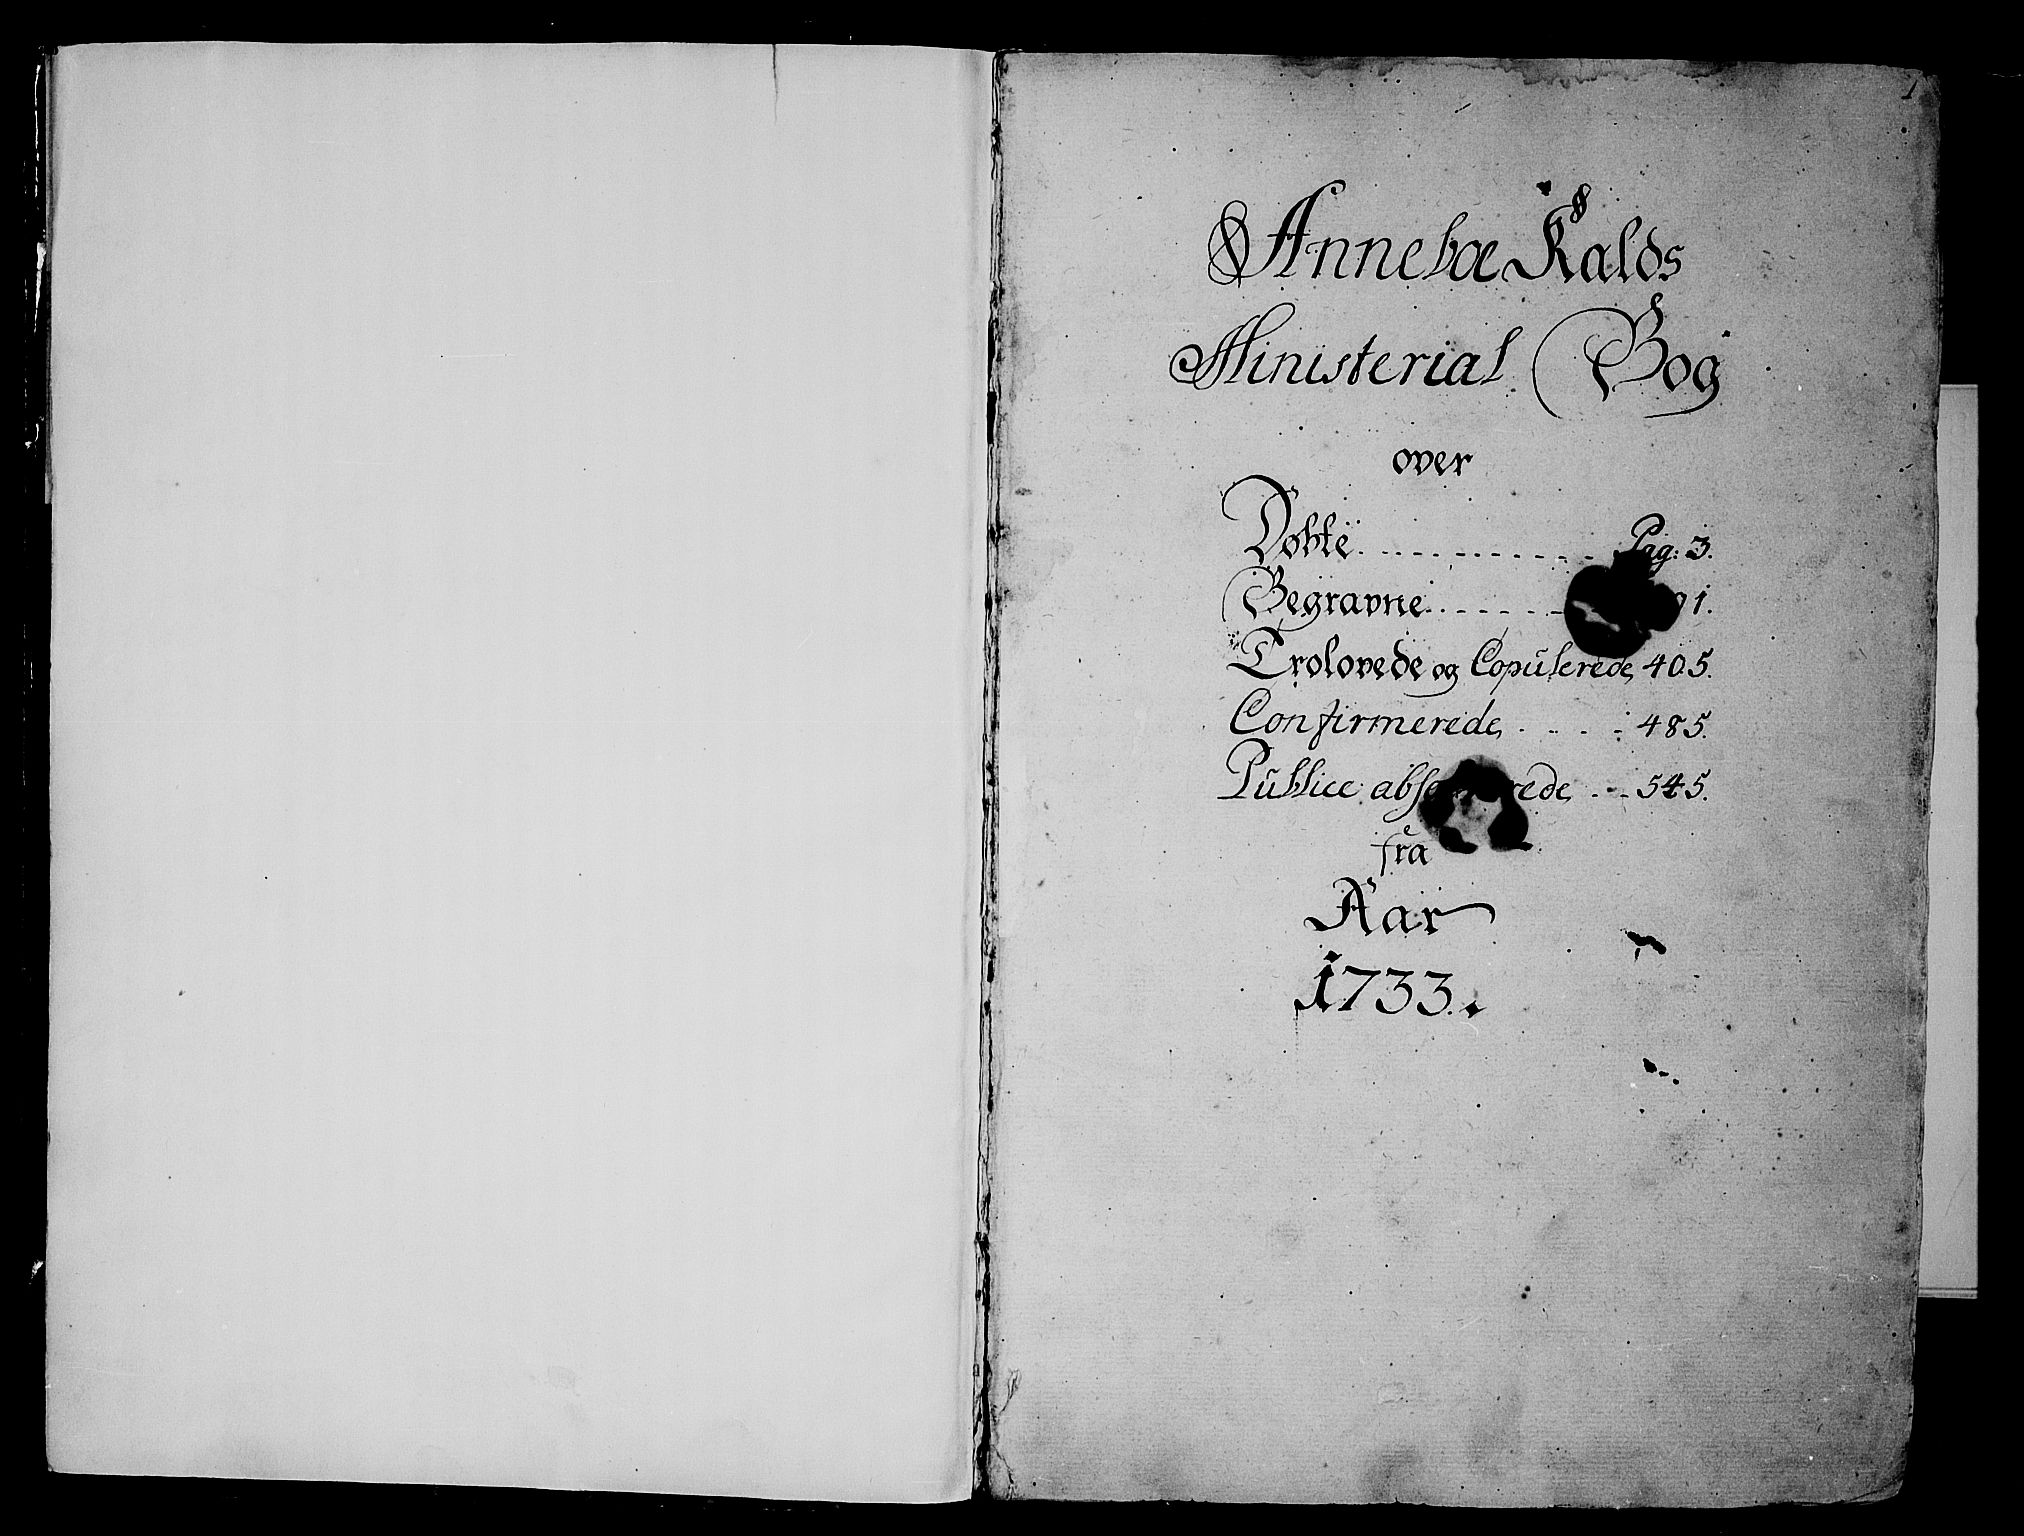 1
Anneboe Kalds
Ministerial Bog
over
Døbte . . . . . . . . . . . . . Pag: 3.
Begravne . . . . . . 1.
Trolovede og Copulerede, 405.
Confirmerede, . . . . 485.
Publice . . . 545.
fra
Aar
1733.